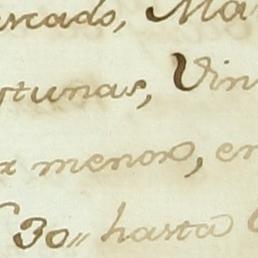 rcado, Ma
rtunas, Vin
r menor, en
30,, hasta